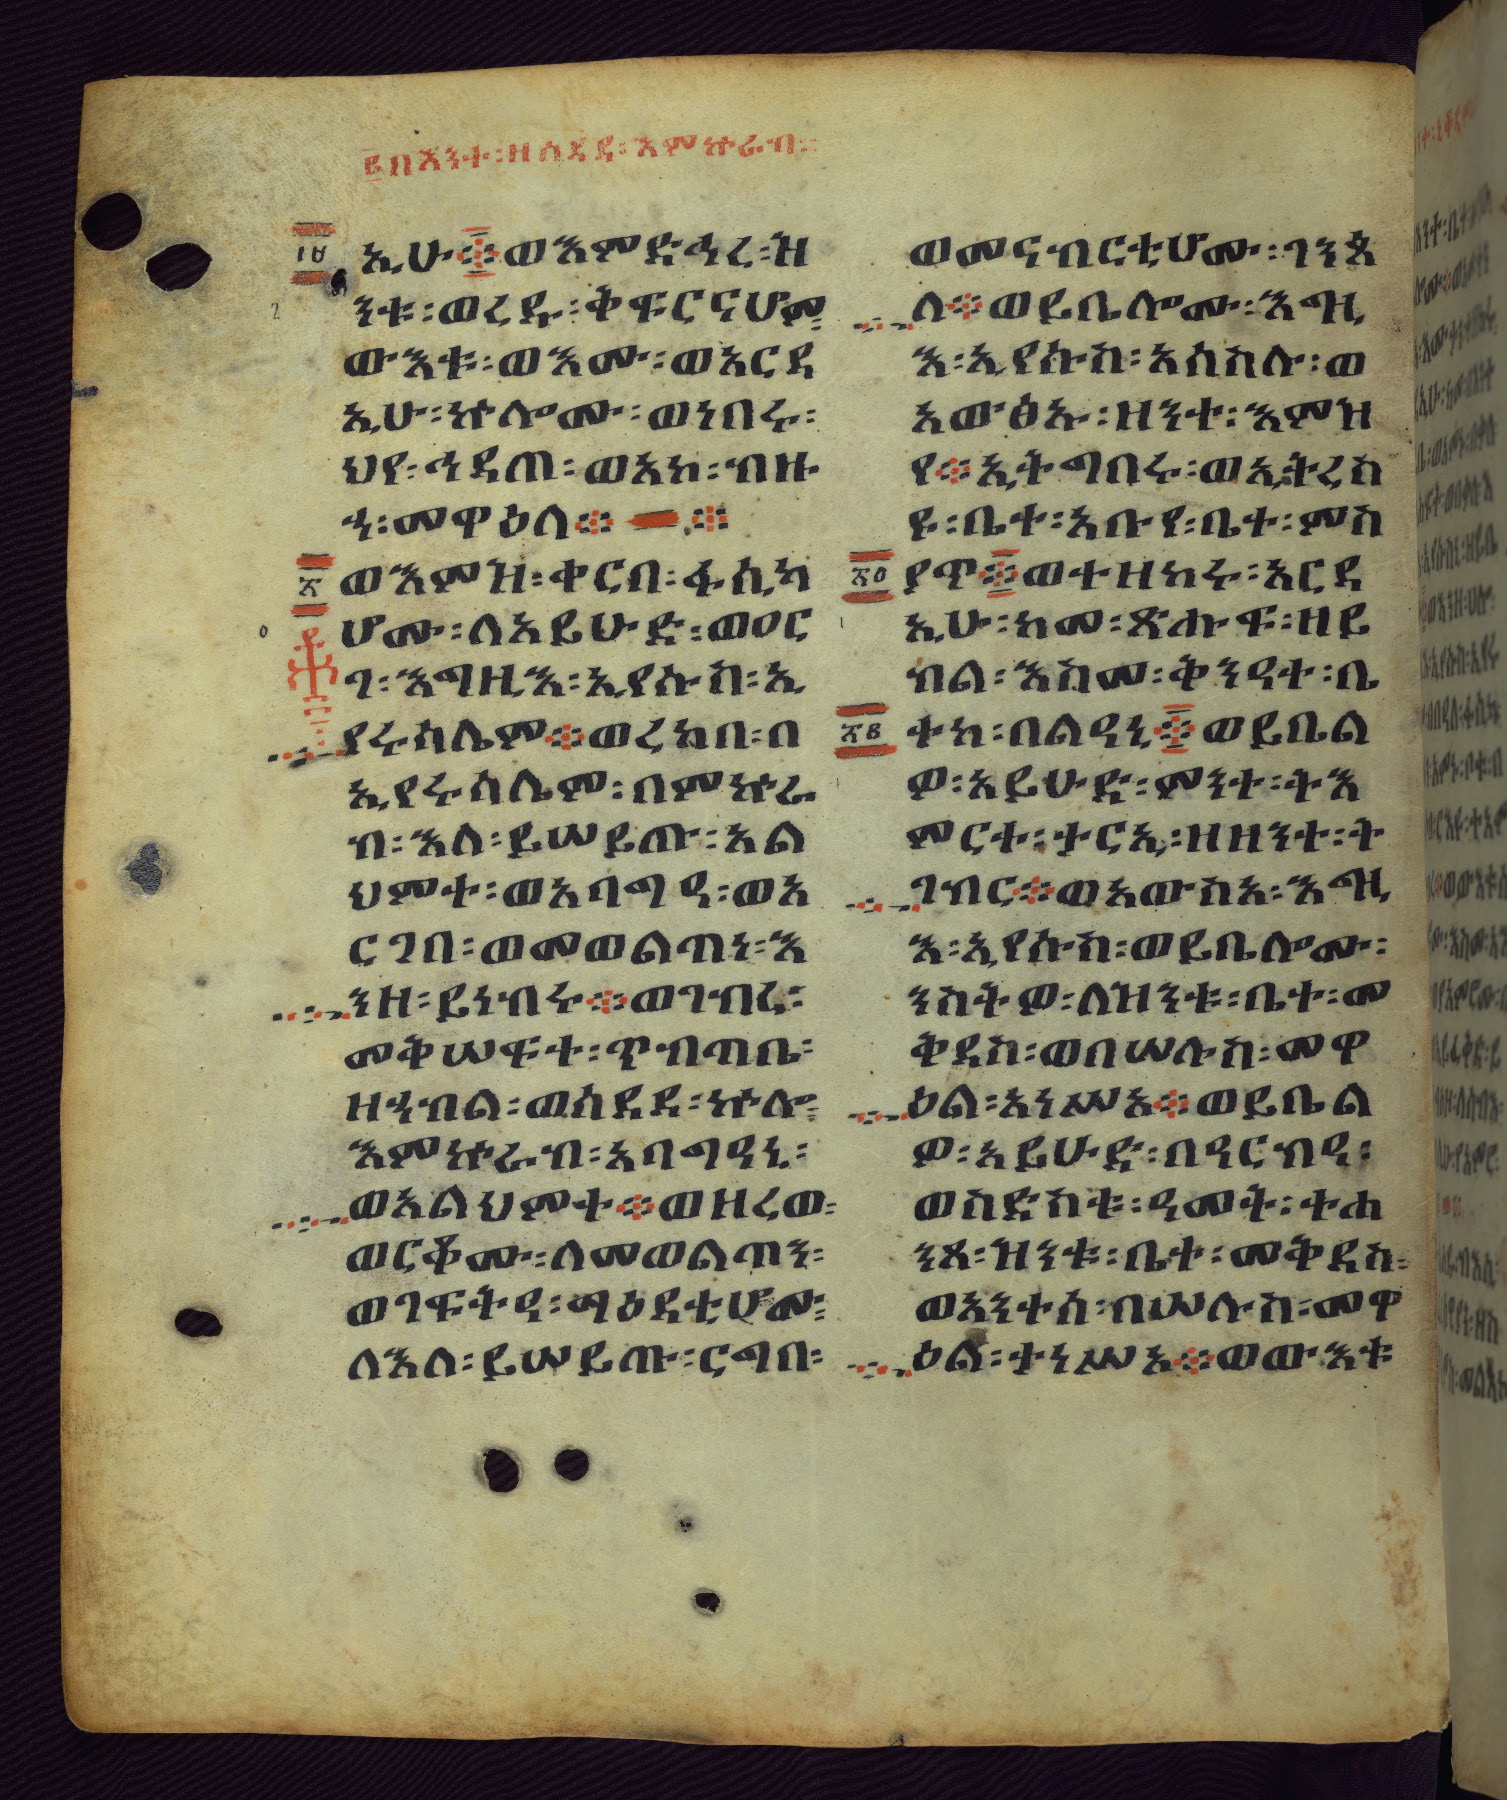 ፪በእንተ፡ዘሰደደ፡እምኵራብ።
፲፱
ኢሁ፨ወእምድኅረ፡ዝ
ንቱ፡ወረደ፡ቅፍርናሆም፡
ውእቱ፡ወእሙ፡ወአርዳ
ኢሁ፡ኵሎሙ፡ወነበሩ፡
ህየ፡ኅዳጠ፡ወአኮ፡ብዙ
ኅ፡መዋዕለ፨ ፨
፳
ወእምዝ፡ቀርበ፡ፋሲካ
ሆሙ፡ለአይሁድ፡ወዐር
ገ፡እግዚእ፡ኢየሱስ፡ኢ
የሩሳሌም፨ወረከበ፡በ
ኢየሩሳሌም፡በምኵራ
ብ፡እለ፡ይሠይጡ፡አል
ህምተ፡ወአባግዐ፡ወአ
ርገበ፡ወመወልጣነ፡እ
ንዘ፡ይነብሩ፨ወገብረ፡
መቅሠፍተ፡ጥብጣቤ፡
ዘኀብል፡ወሰደደ፡ኵሎ፡
እምኵራብ፡አባግዐኒ፡
ወአልህምተ፨ወዘረወ፡
ወርቆሙ፡ለመወልጣን፡
ወገፍትዐ፡ማዕዳቲሆሙ፡
ለእለ፡ይሠይጡ፡ርግበ፡
ወመናብርቲሆሙ፡ገንጰ
ለ፨ወይቤሎሙ፡እግዚ
እ፡ኢየሱስ፡አሰስሉ፡ወ
አውፅኡ፡ዘንተ፡እምዝ
የ፨ኢትግበሩ፡ወኢትረስ
ዩ፡ቤተ፡አቡየ፡ቤተ፡ምስ
ያጥ፨ወተዘከሩ፡አርዳ
ኢሁ፡ከመ፡ጽሑፍ፡ዘይ
ብል፡እስመ፡ቅንዐተ፡ቤ
፳፪
ትከ፡በልዐኒ፨ወይቤል
ዎ፡አይሁድ፡ምንተ፡ትእ
ምርተ፡ታርኢ፡ዘዘንተ፡ት
ገብር፨ወአውስአ፡እግዚ
እ፡ኢየሱስ፡ወይቤሎሙ፡
ንስትዎ፡ለዝንቱ፡ቤተ፡መ
ቅደስ፡ወበሠሉስ፡መዋ
ዕል፡አነሥአ፨ወይቤል
ዎ፡አይሁድ፡በዐርብዓ፡
ወስድስቱ፡ዓመት፡ተሐ
ንጸ፡ዝንቱ፡ቤተ፡መቅደስ፡
ወአንተሰ፡በሠሉስ፡መዋ
ዕል፡ተነሥአ፨ወውእቱ፡